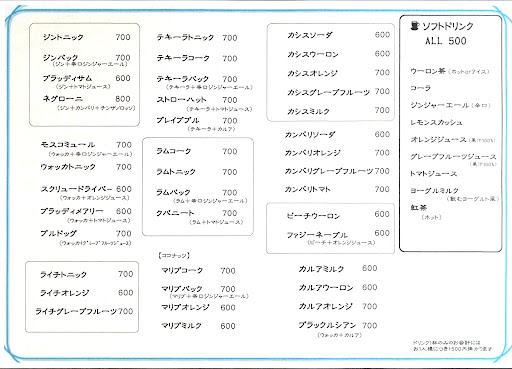 ジントニック 700
ジンバック 700
(ジン+辛口ジンジャーエール)
ブラッディサム 600
(ジン+トマトジュース)
ネグローニ 800
(ジン+カンパリ+チンザノロッソ)
モスコミュール 700
(ウォッカ+辛口ジンジャーエール)
ウォッカトニック 700
スクリュードライバー 600
(ウォッカ+オレンジジュース)
ブラッディメアリー 600
(ウォッカ+トマトジュース)
ブルドッグ 700
(ウォッカ+グレープフルーツジュース)
ライチトニック 700
ライチオレンジ 600
ライチグレープフルーツ 700
テキーラトニック 700
テキーラコーク 700
テキーラバック 700
(テキーラ+辛口ジンジャーエール)
ストローハット 700
(テキーラ+トマトジュース)
ブレイブブル 700
(テキーラ+カルア)
ラムコーク 700
ラムトニック 700
ラムバック 700
(ラム+辛口ジンジャーエール)
クバニート 700
(ラム+トマトジュース)
【ココナッツ】
マリブコーク 700
マリブバック 700
(マリブ+辛口ジンジャーエール)
マリブオレンジ 600
マリブミルク 600
カシスソーダ 600
カシスウーロン 600
カシスオレンジ 700
カシスグレープフルーツ 700
カシスミルク 700
カンパリソーダ 700
カンパリオレンジ 700
カンパリグレープフルーツ 700
カンパリトマト 700
ピーチウーロン 600
ファジーネーブル 600
(ピーチ+オレンジジュース)
カルアミルク 600
カルアウーロン 600
カルアオレンジ 700
ブラックルシアン 700
(ウォッカ+カルア)
ソフトドリンク
ALL 500
ウーロン茶 (ホットorアイス)
コーラ
ジンジャーエール (辛口)
レモンスカッシュ
オレンジジュース (果汁100%)
グレープフルーツジュース
(果汁100%)
トマトジュース
ヨーグルミルク
(飲むヨーグルト風)
紅茶
(ホット)
ドリンク1杯のみのお会計には